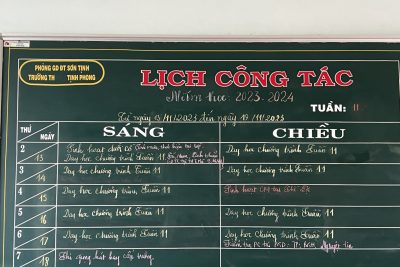 PHÒNG GD ĐT SƠN TỊNH
TRƯỜNG TH TỊNH PHONG
LỊCH CÔNG TÁC
Năm học: 2023-2024
TUẦN: 11
Từ ngày 13/11/2023 đến ngày 19/11/2023
THỨ NGÀY SÁNG CHIỀU
2 13 Sinh hoạt dưới cờ
Dạy học chương trình Tuần 11 Dạy học chương trình Tuần 11
3 14 Dạy học chương trình Tuần 11 Dạy học chương trình Tuần 11
4 15 Dạy học chương trình Tuần 11 Sinh hoạt
5 16 Dạy học chương trình Tuần 11 Dạy học chương trình Tuần 11
6 17 Dạy học chương trình Tuần 11 Dạy học chương trình Tuần 11
7 18 Thi